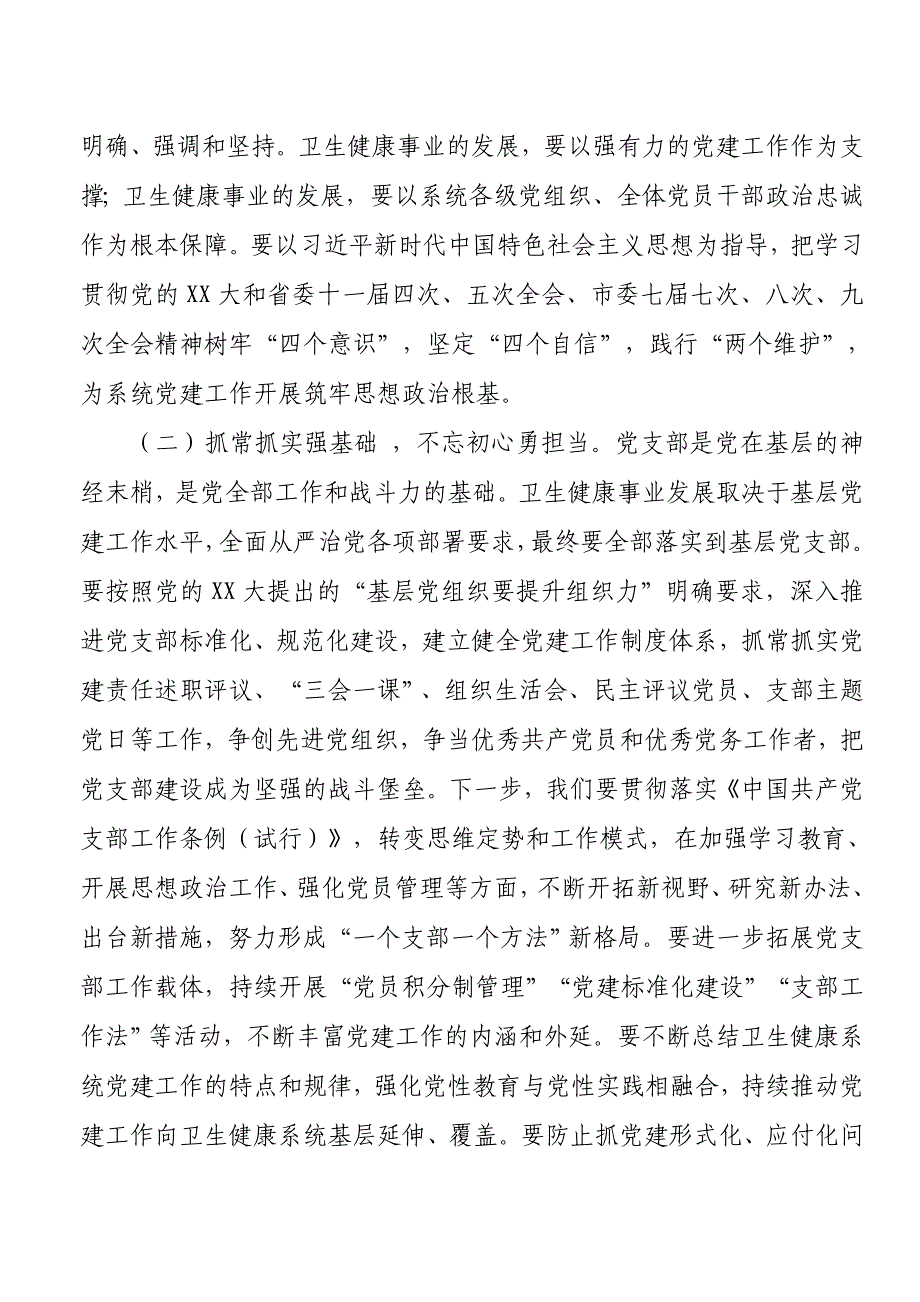 明确、强调和坚持。卫生健康事业的发展，要以强有力的党建工作作为支
撑; 卫生健康事业的发展，要以系统各级党组织、全体党员干部政治忠诚
作为根本保障。要以习近平新时代中国特色社会主义思想为指导，把学习
贯彻党的 XX 大和省委十一届四次、五次全会、市委七届七次、八次、九
次全会精神树牢“四个意识”，坚定“四个自信”，践行“两个维护”，
为系统党建工作开展筑牢思想政治根基。
（二）抓常抓实强基础 ，不忘初心勇担当。党支部是党在基层的神
经末梢，是党全部工作和战斗力的基础。卫生健康事业发展取决于基层党
建工作水平，全面从严治党各项部署要求，最终要全部落实到基层党支部。
要按照党的 XX 大提出的“基层党组织要提升组织力”明确要求，深入推
进党支部标准化、规范化建设，建立健全党建工作制度体系，抓常抓实党
建责任述职评议、“三会一课”、组织生活会、民主评议党员、支部主题
党日等工作，争创先进党组织，争当优秀共产党员和优秀党务工作者，把
党支部建设成为坚强的战斗堡垒。下一步，我们要贯彻落实《中国共产党
支部工作条例（试行）》，转变思维定势和工作模式，在加强学习教育、
开展思想政治工作、强化党员管理等方面，不断开拓新视野、研究新办法、
出台新措施，努力形成“一个支部一个方法”新格局。要进一步拓展党支
部工作载体，持续开展“党员积分制管理”“党建标准化建设”“支部工
作法”等活动，不断丰富党建工作的内涵和外延。要不断总结卫生健康系
统党建工作的特点和规律，强化党性教育与党性实践相融合，持续推动党
建工作向卫生健康系统基层延伸、覆盖。要防止抓党建形式化、应付化问